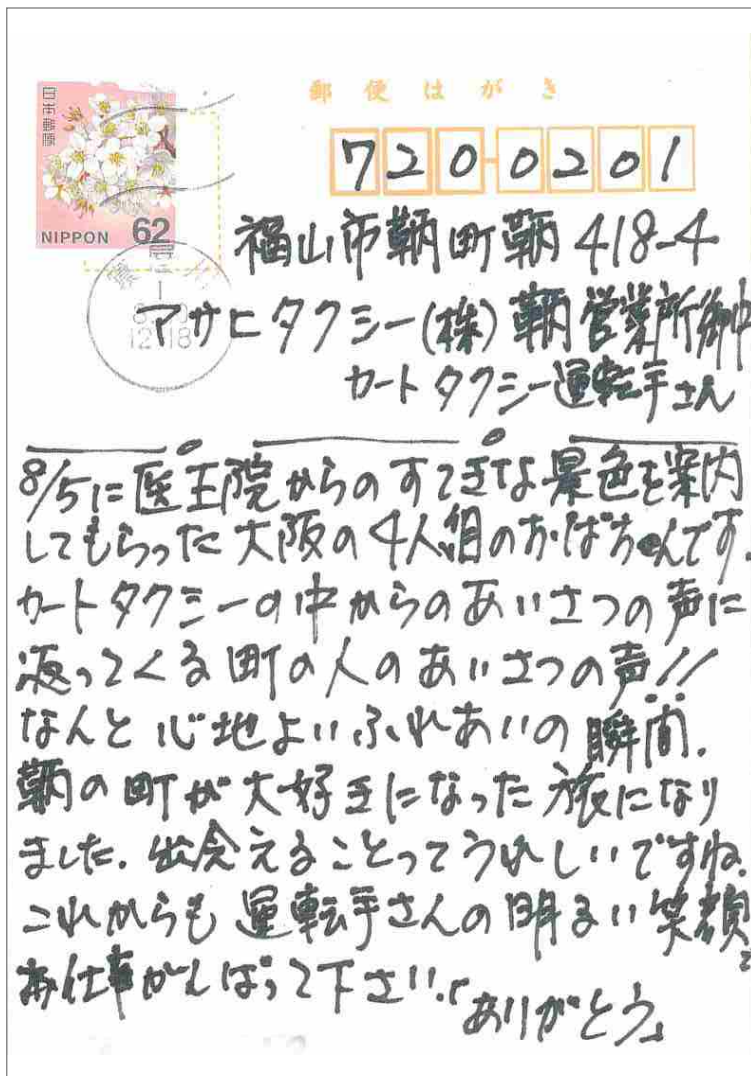 郵便はがき
日本郵便
NIPPON 62
720-0201
福山市鞆町鞆418-4
アサヒタクシー(株)鞆営業所御中
カートタクシー運転手さん
12-18
8/5に医王院からのすてきな景色を案内
してもらった大阪の4人組のおばちゃんです。
カートタクシーの中からのあいさつの声に
返ってくる町の人のあいさつの声!!
なんと心地よいふれあいの瞬間.
鞆の町が大好きになった旅になり
ました.出会えることってうれしいですね.
これからも運転手さんの明るい笑顔で
お仕事がんばって下さい.「ありがとう」